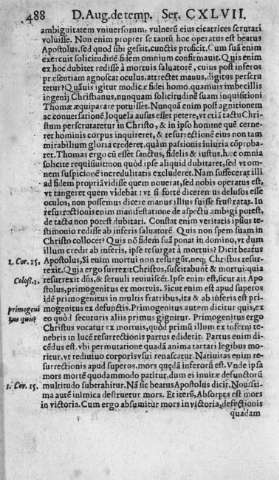 488 D. Aug. de temp. Ser. CXLVII.
ambiguitatem vniuersorum, vulneris eius cicatrices scrutari
voluisse. Non enim proprie se tanti hoc operatus est beatus
Apostolus, sed quod sibi gessit, cunctis proficit. Cum suã enim
exercuit solicitudinẽ fidem omnium confirmauit. Quis enim
ex hoc dubitet redisse à mortuis saluatorẽ, cuius post inferos
præsentiam agnoscat oculus, attrectet manus, digitus perscru
tetur? Quãuis igitur modicæ fidei homo quamuis imbecillis
ingenij Christianus, nunquam solicitudinẽ suam inquisitioni
Thomæ æquiparare potuisset. Nunquã enim post agnitionem
ac conuersationẽ loquela ausus esset petere, vt vti tactu Chri
stum perscrutaretur in Christo, & in ipso homine quæ eorne-
ret hominis corpus inquireret, & resurrectiõis eius non tam
mirabilem gloria crederet, quàm passionis iniuria cõproba-
ret. Thomas ergo cũ esset sanctus, fidelis & iustus, hæc omnia
solicite requisiuit non quòd ipse aliquid dubitaret, sed vt om-
nem suspicionẽ incredulitatis excluderet. Nam suffecerat illi
ad fidem propriã vidisse quem nouerat, sed nobis operatus est,
vt tangeret quem videbat: vt si fortè diceremus delusos esse
oculos, non possemus dicere manus illius fuisse frustratas. In
resurrectionis enim manifestatione de aspectu ambigi potest,
de tactu non potest dubitari. Constat enim veritatis ipsius te-
stimonio redisse ab inferis saluatorẽ. Quis non spem suam in
Christo collocet? Quis nõ fidem suã ponat in domino, vt dum
illum credit ab inferis, ipse resurgat à mortuis? Dicit beatus
1. Cor. 15. Apostolus, Si enim mortui non resurgũt, neq; Christus resur-
rexit. Quia ergo surrexit Christus, suscitabũt & mortui quia
Coloss. 1. resurrexit dñs, & seruuli reuiuiscẽt. Ipse enim est, sicut ait Apo
stolus, primogenitus ex mortuis. Sicut enim est apud superos
idẽ primogenitus in multis fratribus, ita & ab inferis est pri-
primogeni mogenitus ex defunctis. Primogenitus autem dicitur quis, ex
tus quis? eo quòd secuturis aliis primus gignitur. Primogenitus ergo
Christus vocatur ex mortuis, quòd primũ illum ex inferni te-
nebris in lucẽ resurrectionis partus ediderit. Partus enim di-
cẽdus est, vbi per mutatione quadã anima tartari legibus mo-
ritur, vt rediuiuo corporis vsui renascatur. Natiuitas enim re-
surrectionis apud superos, mors quẽdã inferorũ est. Vnde ipsa
mors mortẽ quodammodo patitur, dum ei inuitæ defunctorũ
1. Cor. 15. multitudo subtrahitur. Nã sic beatus Apostolus dicit, Nouissi-
ma autẽ inimica destruetur mors. Et iterũ, Absorpta est mors
in victoria. Cum ergo absumitur mors in victoria, defectionis
quadam